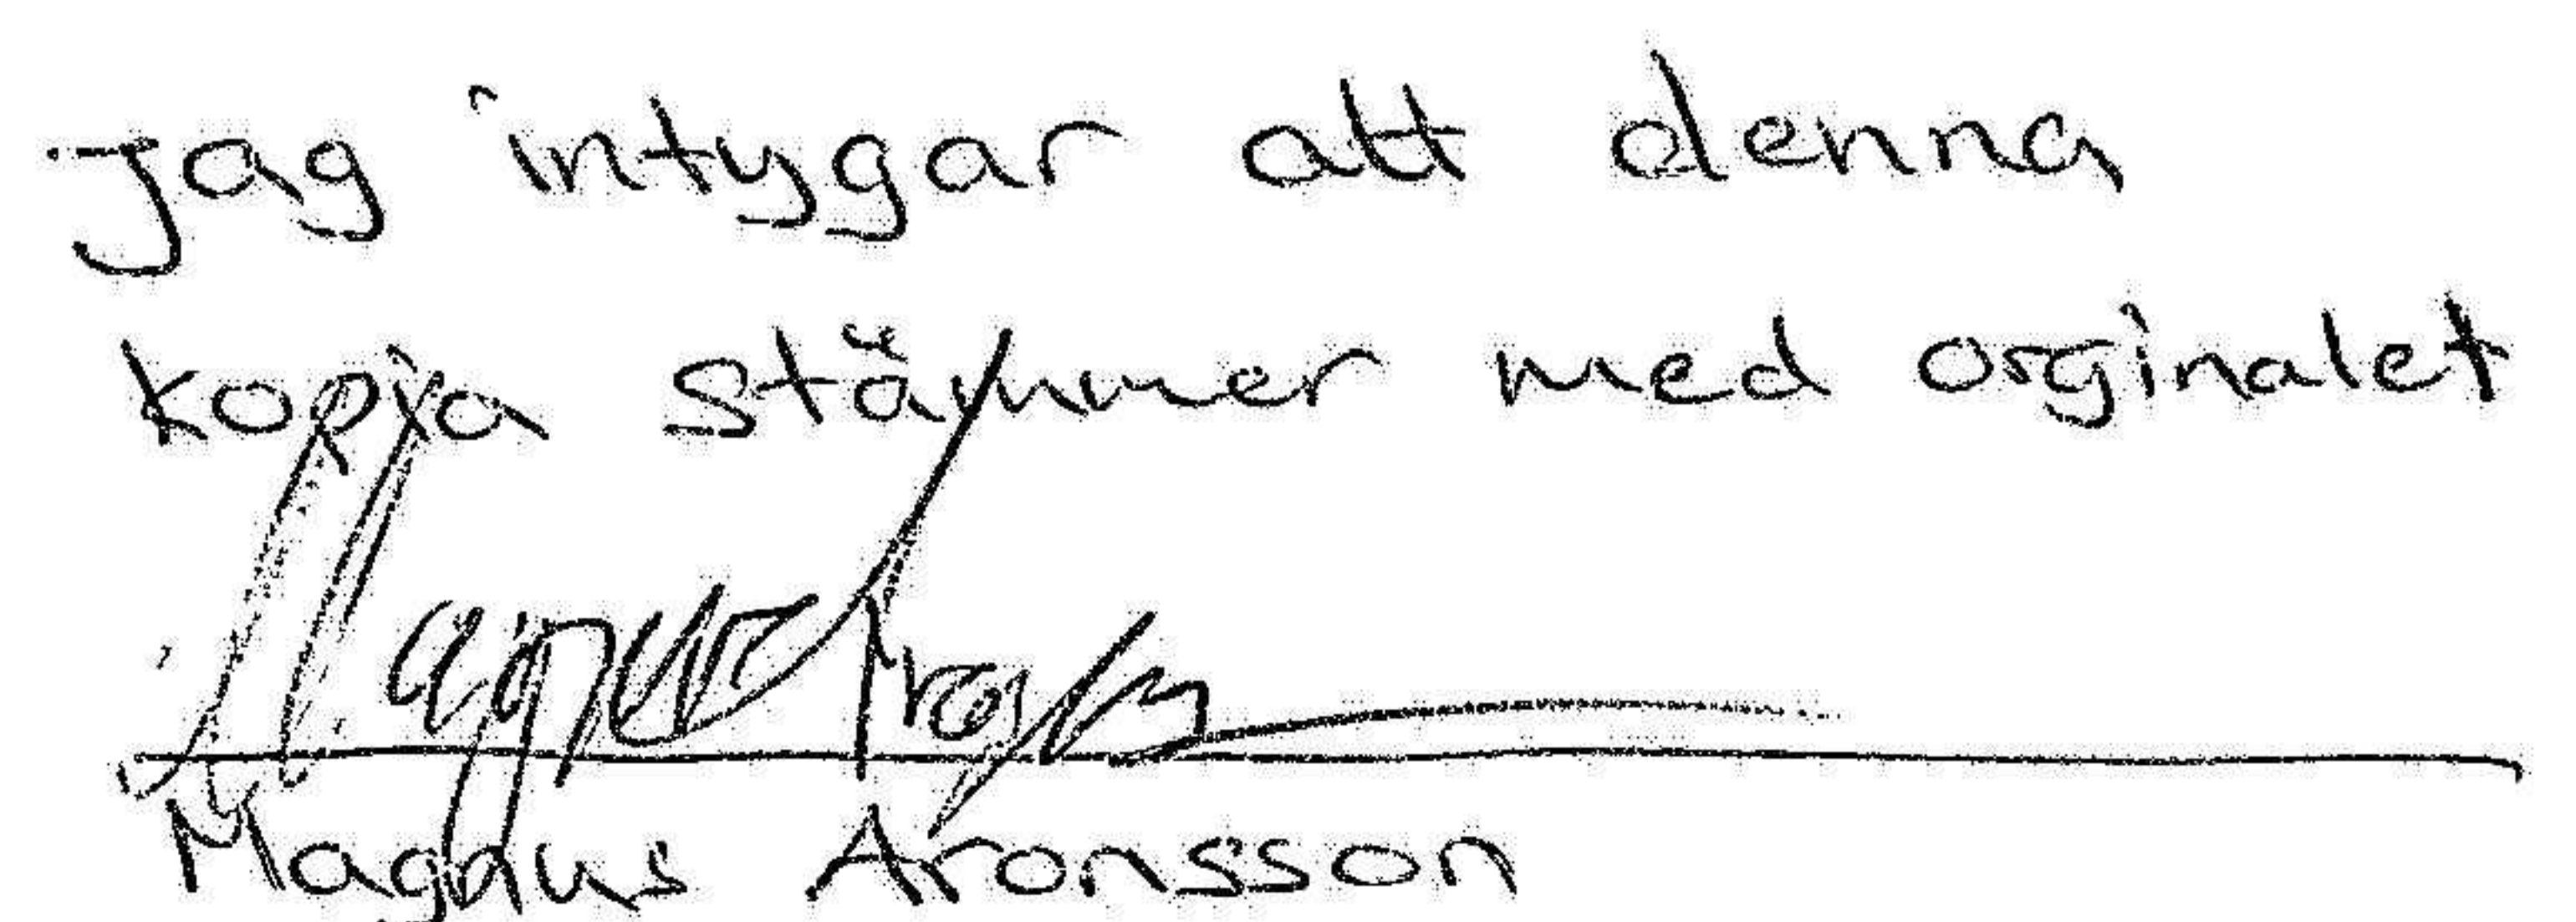 jag intygar att denna
kopia stämmer med orginalet
Magnus Aronsson
Magnus Aronsson